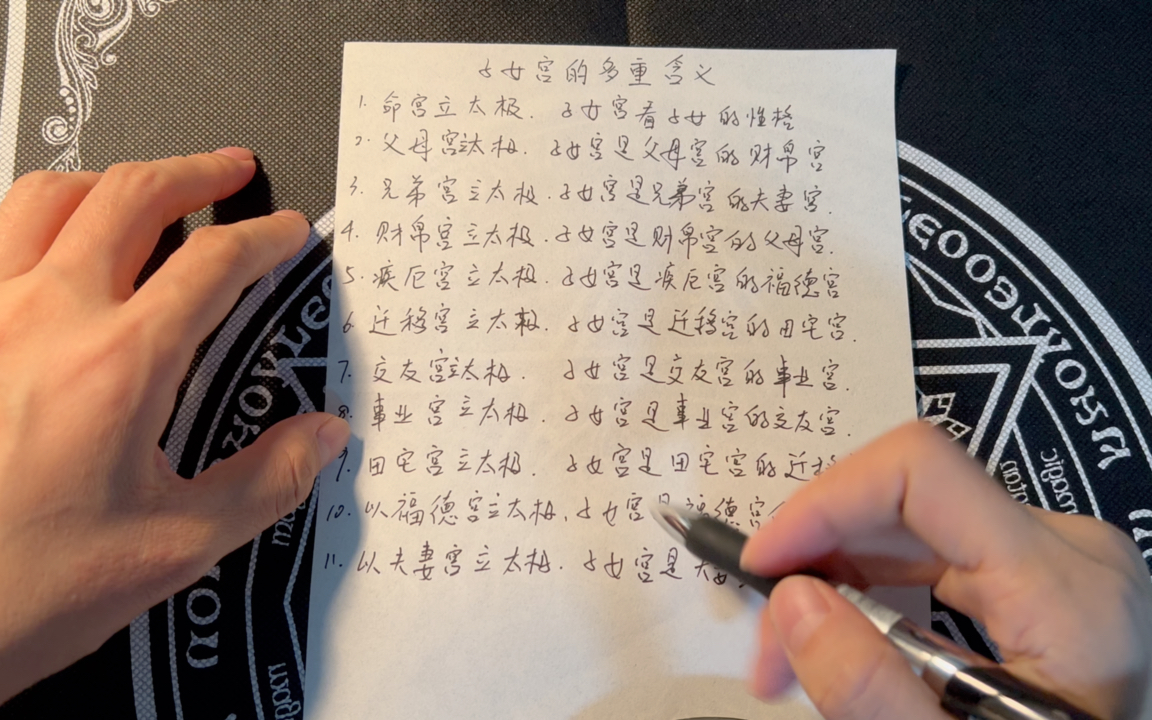 子女宫的多重含义
1. 命宫立太极. 子女宫看子女的性格
2. 父母宫立太极. 子女宫是父母宫的财帛宫
3. 兄弟宫立太极. 子女宫是兄弟宫的夫妻宫.
4. 财帛宫立太极. 子女宫是财帛宫的父母宫.
5. 疾厄宫立太极. 子女宫是疾厄宫的福德宫
6. 迁移宫立太极. 子女宫是迁移宫的田宅宫.
7. 交友宫立太极. 子女宫是交友宫的事业宫.
8. 事业宫立太极. 子女宫是事业宫的交友宫.
9. 田宅宫立太极. 子女宫是田宅宫的迁移
10. 以福德宫立太极. 子女宫是福德宫
11. 以夫妻宫立太极. 子女宫是夫
magic